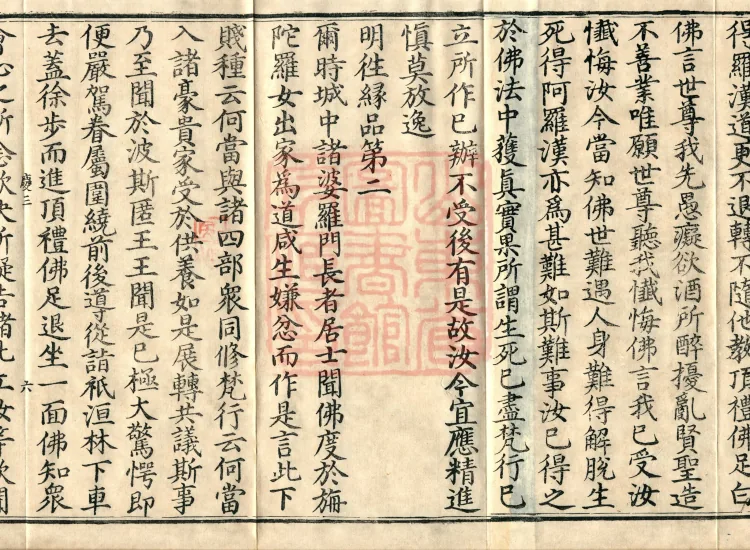 得羅漢道更不退轉不隨他教頂禮佛足白
佛言世尊我先愚癡欲酒所醉擾亂賢聖造
不善業唯願世尊聽我懺悔佛言我已受汝
懺悔汝今當知佛世難遇人身難得解脫生
死得阿羅漢亦為甚難如斯難事汝已得之
於佛法中獲真實果所謂生死已盡梵行已
立所作已辦不受後有是故汝今宜應精進
慎莫放逸
明往緣品第二
爾時城中諸婆羅門長者居士聞佛度於旃
陀羅女出家為道咸生嫌忿而作是言此下
賤種云何當與諸四部眾同修梵行云何當
入諸豪貴家受於供養如是展轉共議斯事
乃至聞於波斯匿王王聞是已極大驚愕即
便嚴駕眷屬圍繞前後導從詣祇洹林下車
去蓋徐步而進頂禮佛足退坐一面佛知眾
慶三
六
會心之所念欲決所疑告諸比丘汝等欲聞